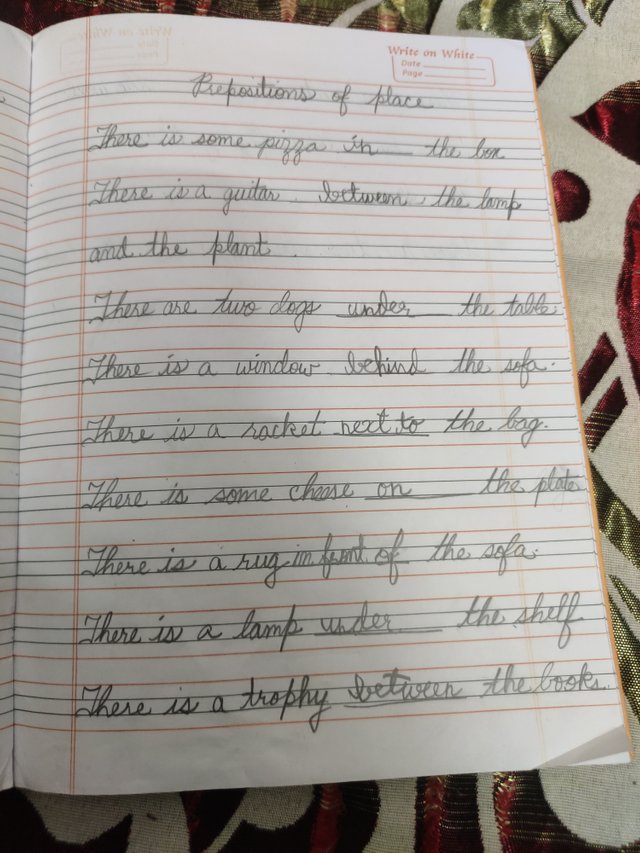 Write on White
Date
Page
Prepositions of place
There is some pizza in the box
There is a guitar between the lamp
and the plant.
There are two dogs under the table.
There is a window behind the sofa.
There is a racket next to the bag.
There is some cheese on the plate
There is a rug in front of the sofa.
There is a lamp under the shelf
There is a trophy between the books.